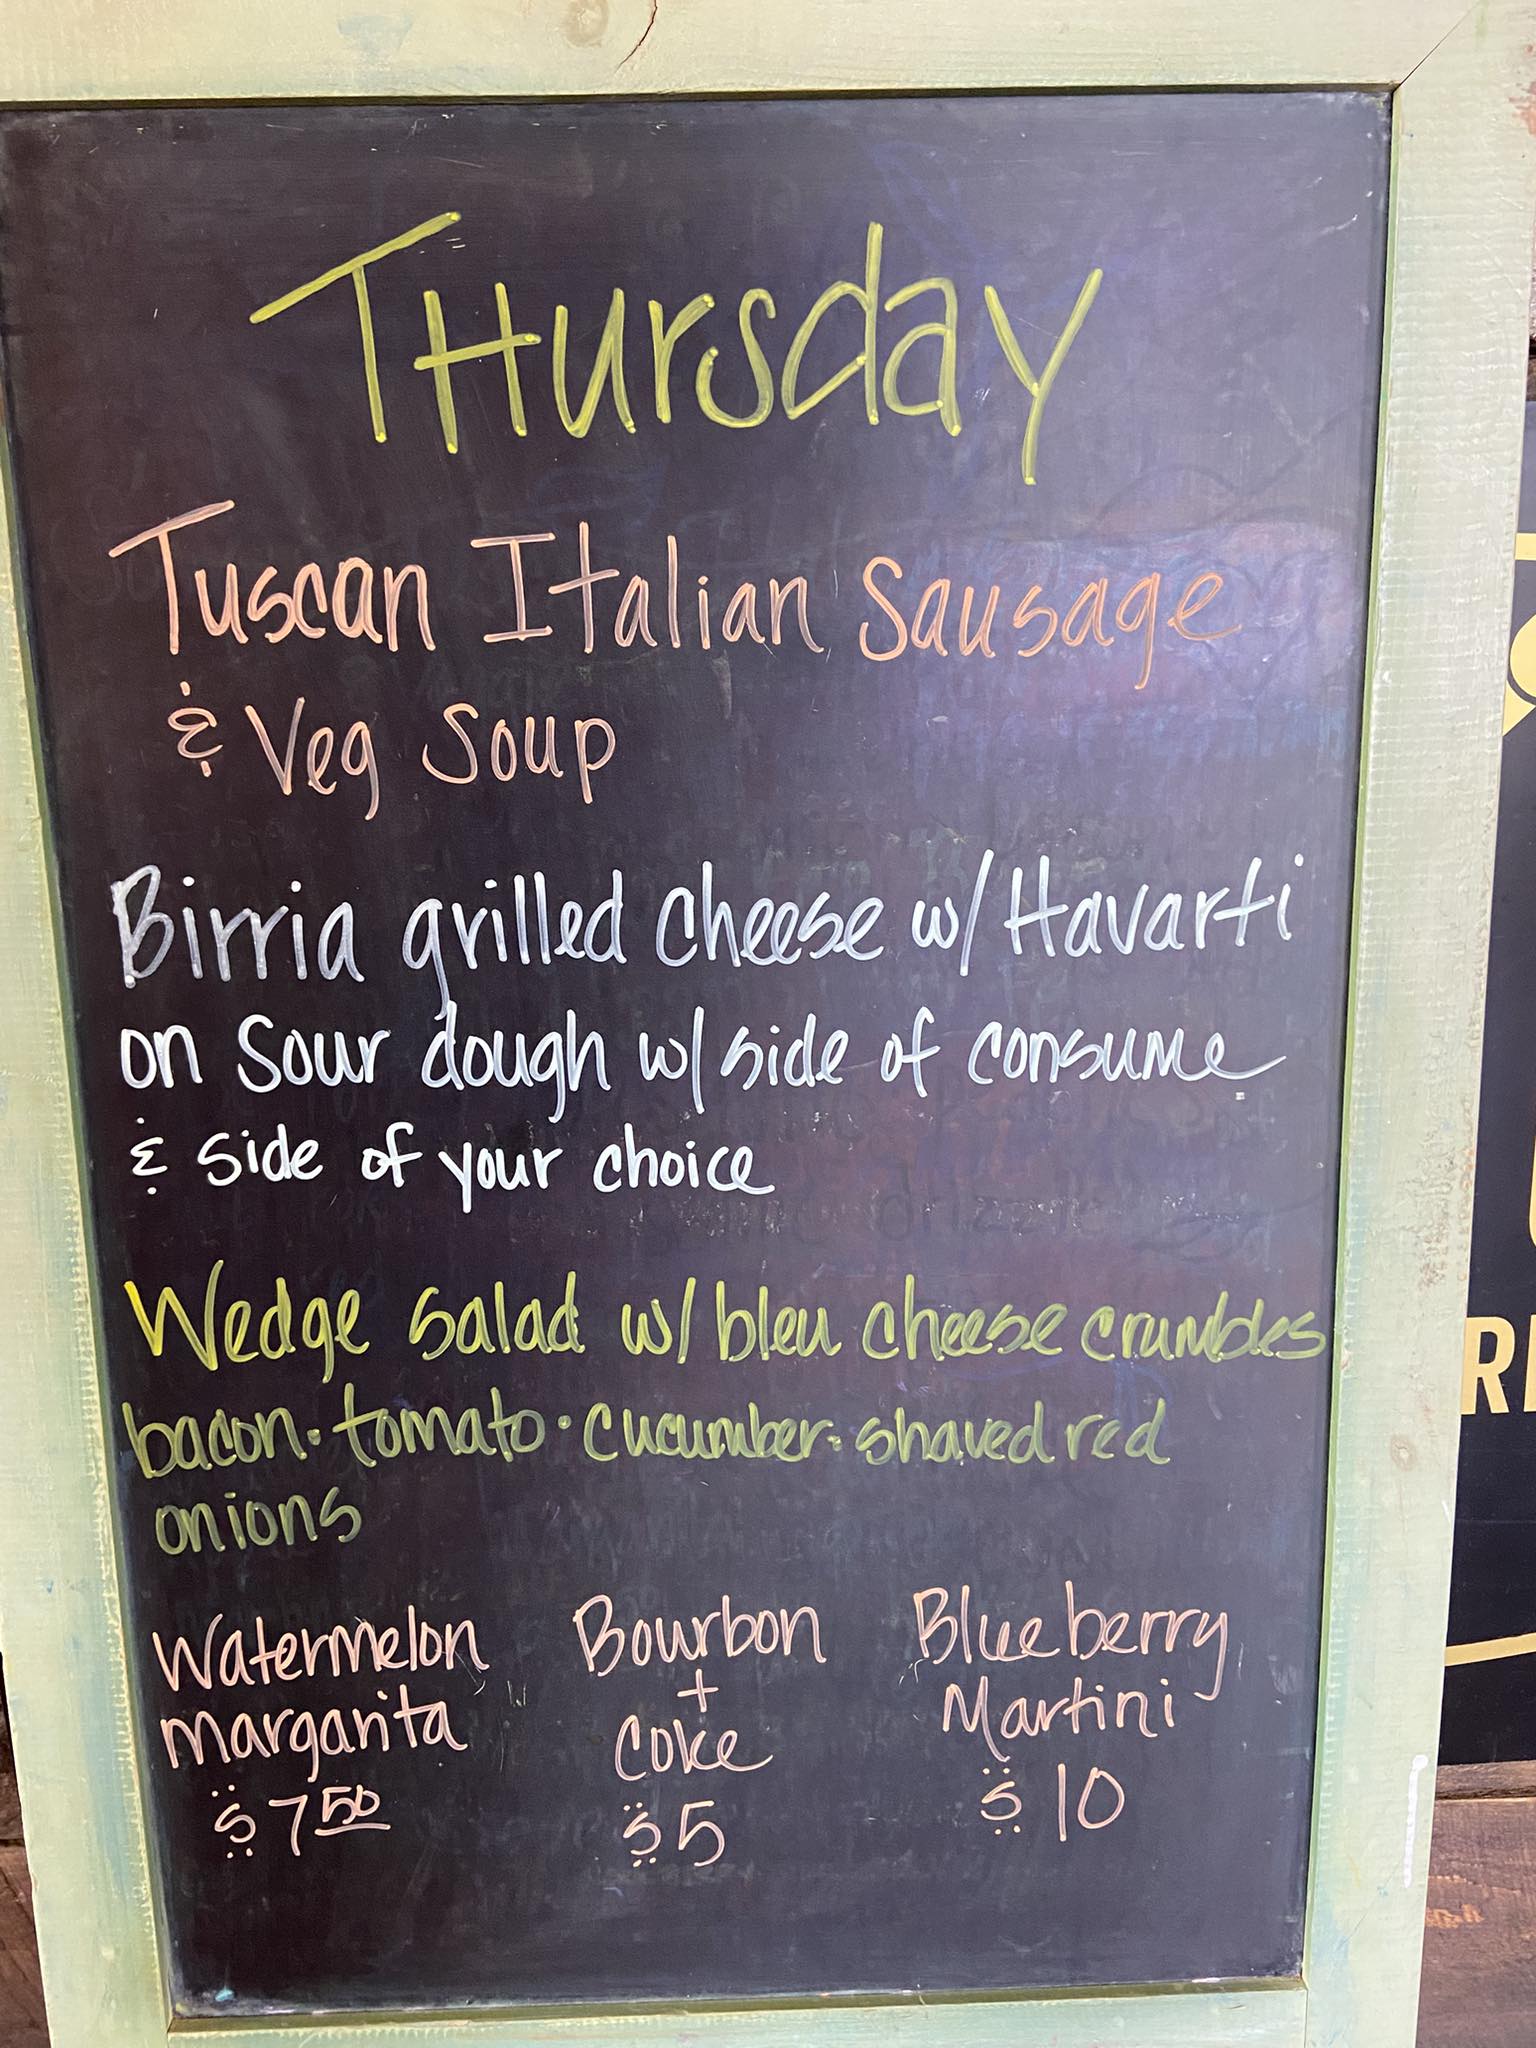 THursday
Tuscan Italian Sausage
& Veg Soup
Birria grilled cheese w/ Havarti
on Sour dough w/ side of consume
& side of your choice
Wedge salad w/ bleu cheese crumbles
bacon · tomato · cucumber · shaved red
onions
Watermelon
margarita
$7.50
Bourbon
+
Coke
$5
Blueberry
Martini
$10